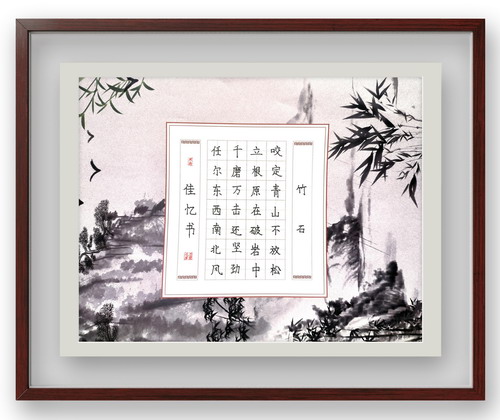 竹石
咬定青山不放松
立根原在破岩中
千磨万击还坚劲
任尔东西南北风
佳忆书